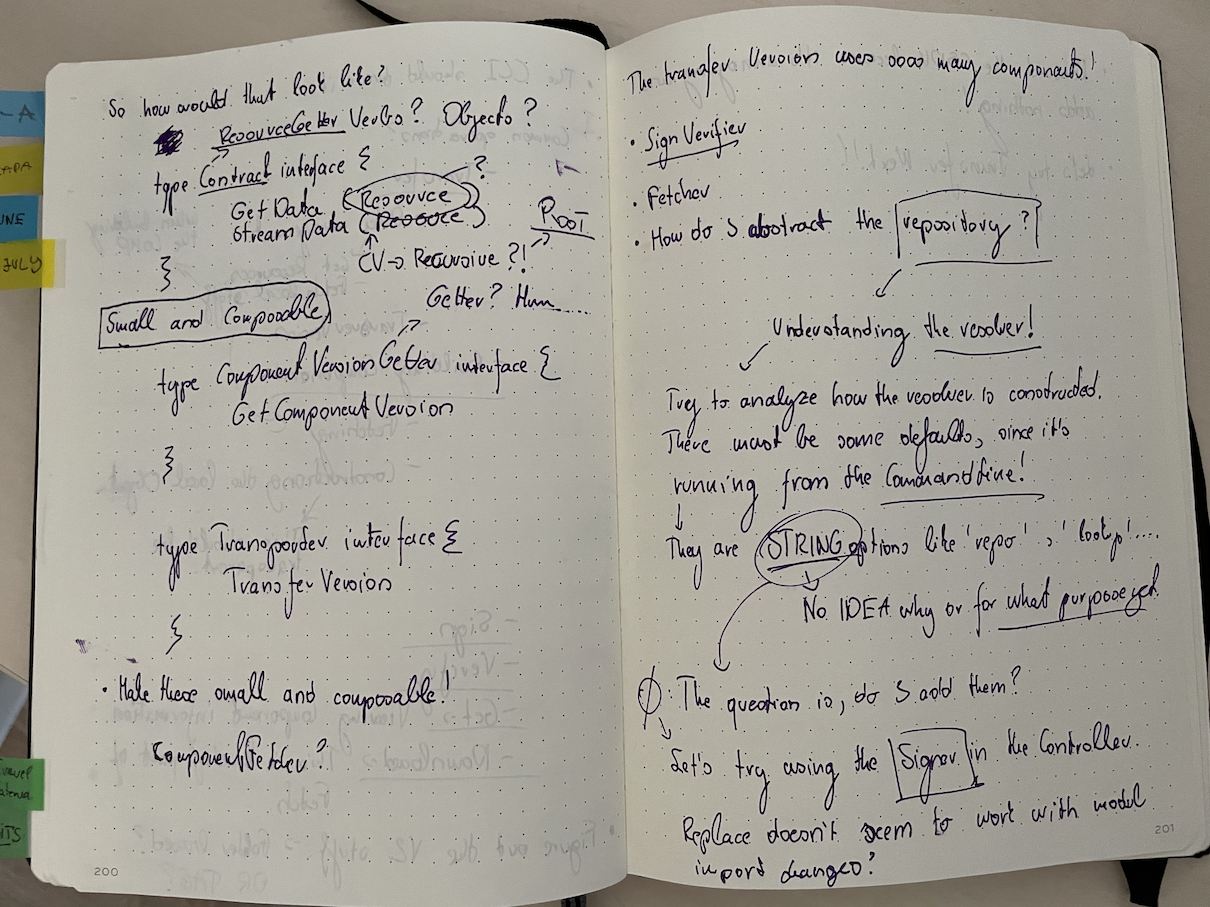 So how would that look like?
ResourceGetter Verbs? Objects?
type Contract interface {
?
Get Data (Resource)
Stream Data (Resource)
Root
}
CV → Recursive?!
Getter? Hm.....
Small and Composable
type Component Version Getter interface {
Get Component Version
}
type Transporter interface {
Transfer Version
}
• Make these small and composable!
ComponentFetcher?
200
The transfer Version uses sooo many components!
• Sign Verifier
• Fetcher
• How do I abstract the repository?
Understanding the resolver!
Try to analyze how the resolver is constructed.
There must be some defaults, since it's
running from the Commandline!
They are STRING options like 'repo', 'lookup'....
No IDEA why or for what purpose yet.
The question is, do I add them?
Let's try using the Signer in the Controller.
Replace doesn't seem to work with model
import changes?
201
-A
JUNE
JULY